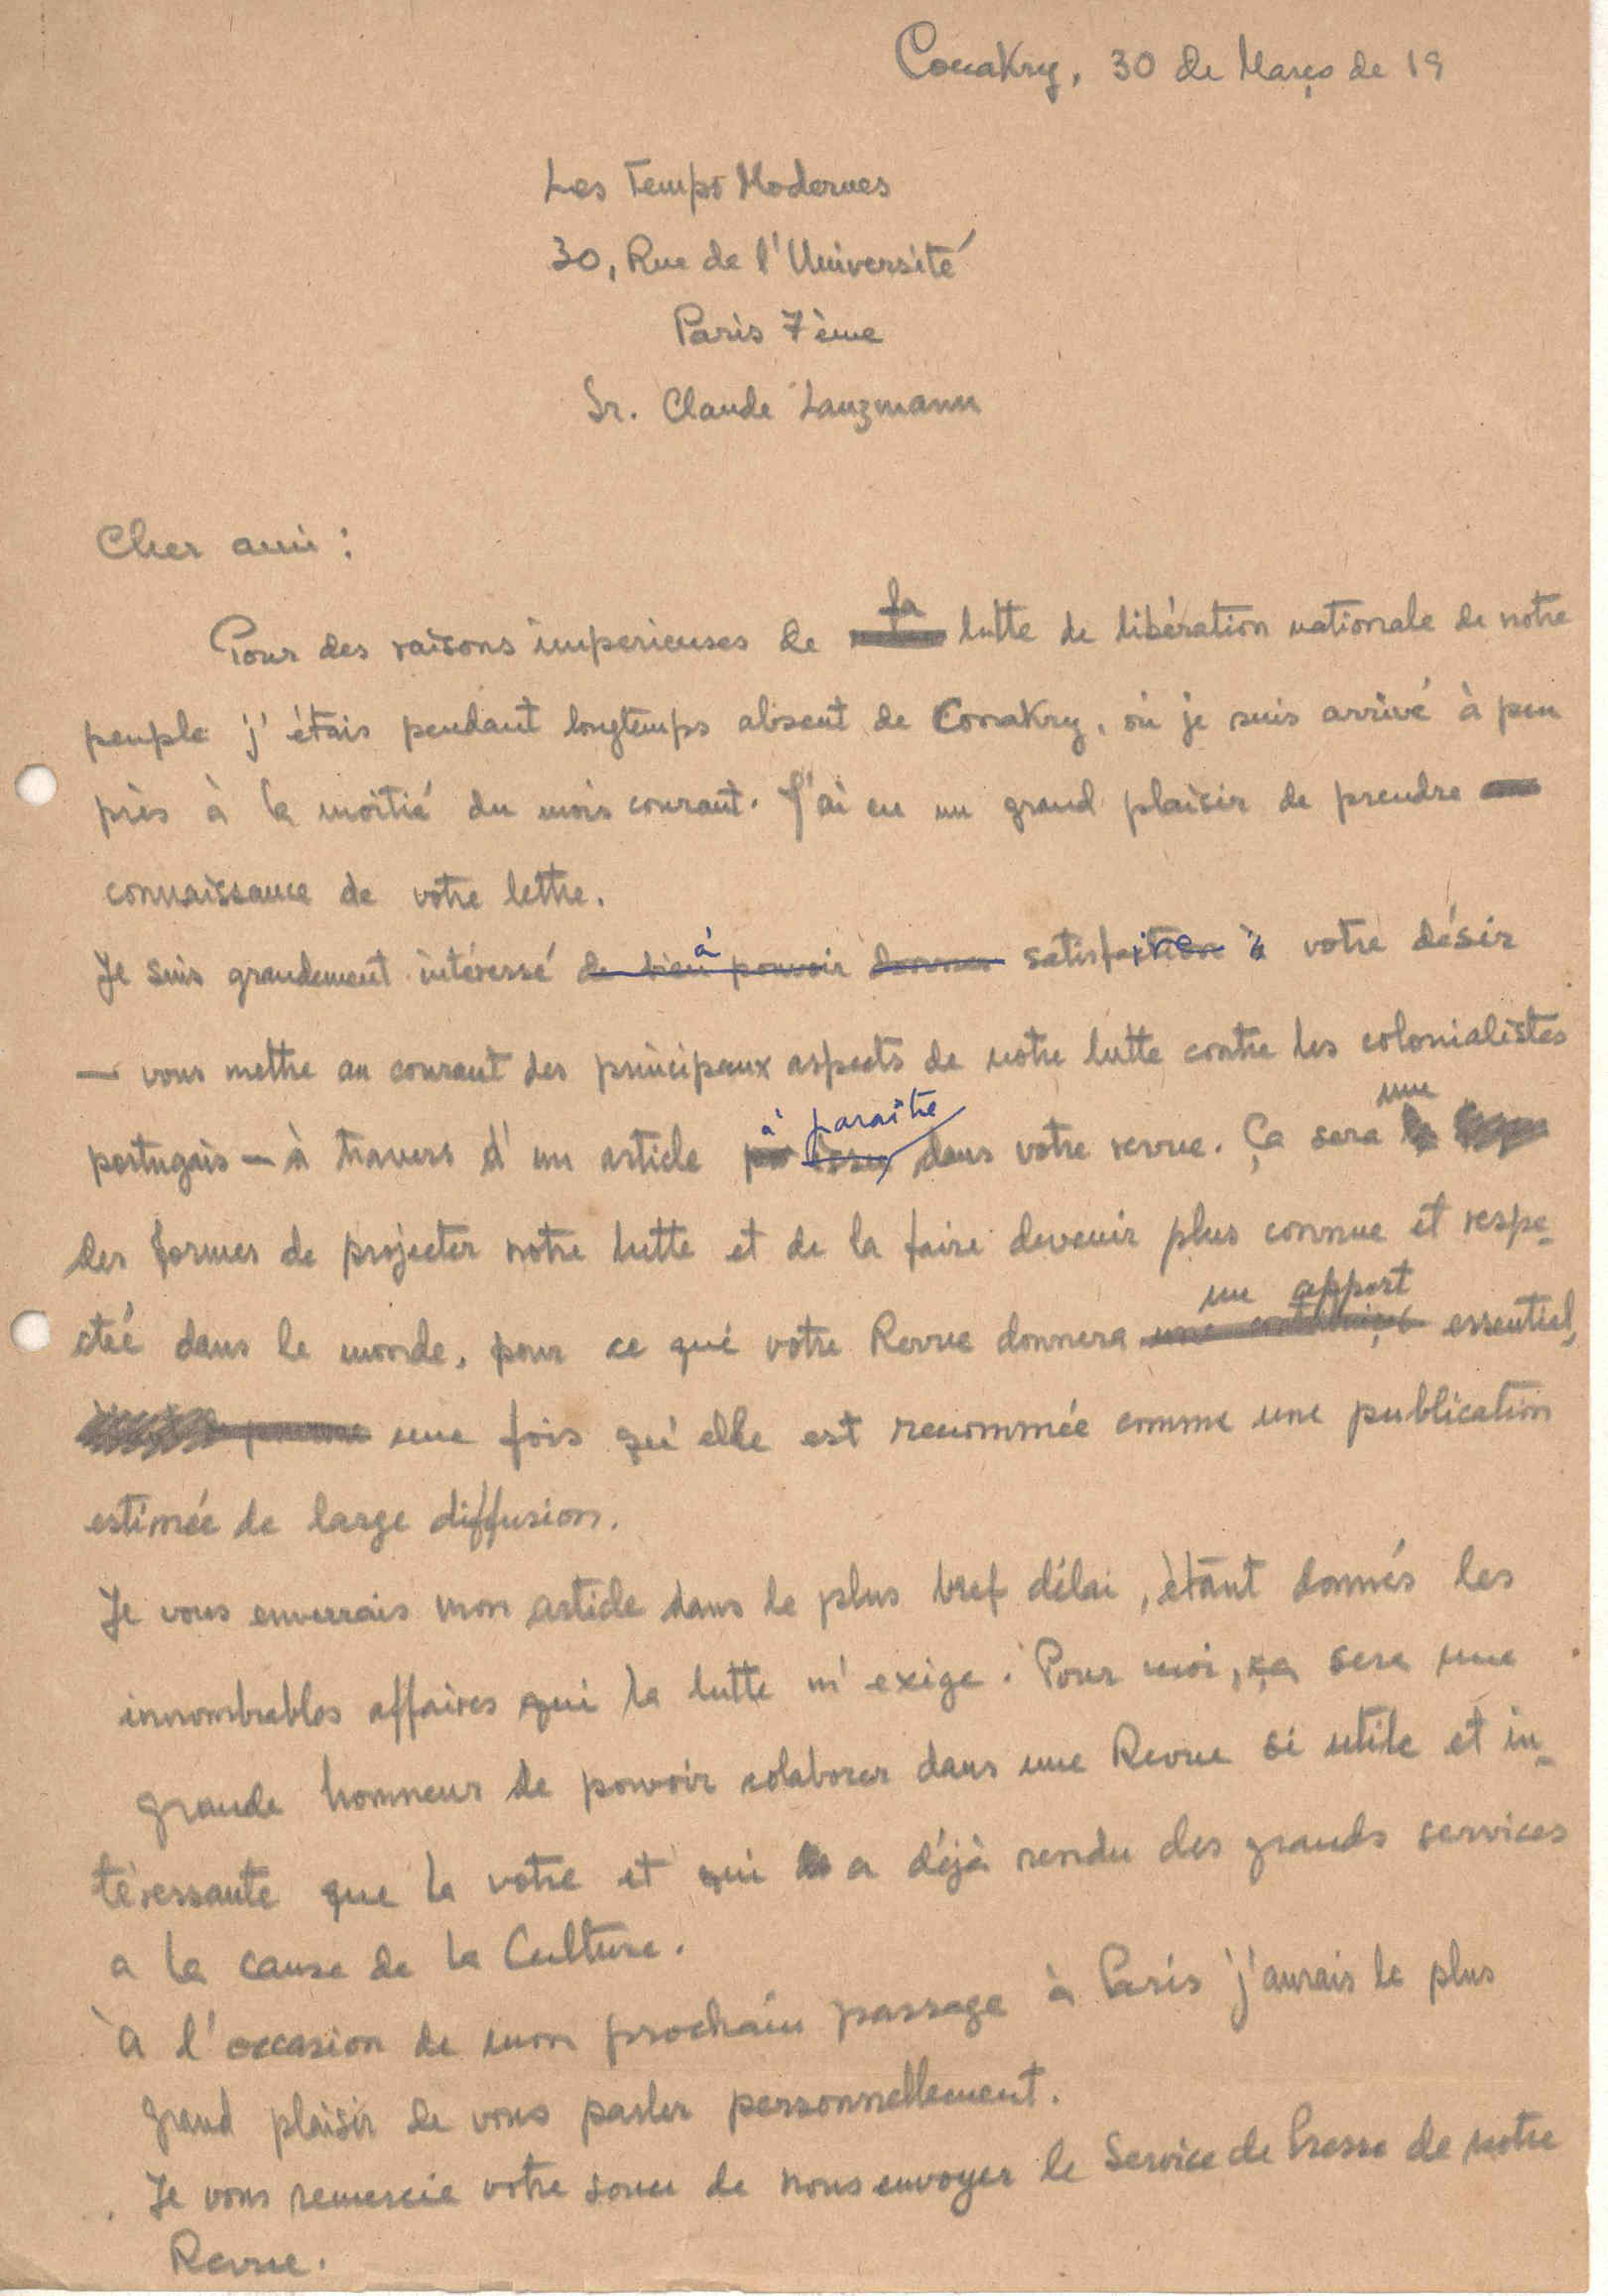 Conakry, 30 de Março de 19
Les Temps Modernes
30, Rue de l'Université
Paris 7ème
Sr. Claude Lanzmann
Cher ami :
Pour des raisons imperieuses de la lutte de libération nationale de notre
peuple j'étais pendant longtemps absent de Conakry, où je suis arrivé à peu
près à la moitié du mois courant. J'ai eu un grand plaisir de prendre
connaissance de votre lettre.
Je suis grandement intéressé à satisfaire votre désir
— vous mettre au courant des principaux aspects de notre lutte contre les colonialistes
portugais — à travers d'un article à paraître dans votre revue. Ça sera une
des formes de projecter notre lutte et de la faire devenir plus connue et respe-
cteé dans le monde, pour ce qué votre Revue donnera un apport essentiel,
une fois qu'elle est renommée comme une publication
estimée de large diffusion.
Je vous enverrais mon article dans le plus bref délai, ètant donnés les
innombrables affaires qui la lutte m'exige. Pour moi, ça sera une
grande honneur de pouvoir colaborer dans une Revue si utile et in-
téressante que la votre et qui a déjà rendu des grands services
a la cause de la Culture.
À l'occasion de mon prochain passage à Paris j'aurais le plus
grand plaisir de vous parler personnellement.
Je vous remercie votre souci de nous envoyer le Service de Presse de notre
Revue.